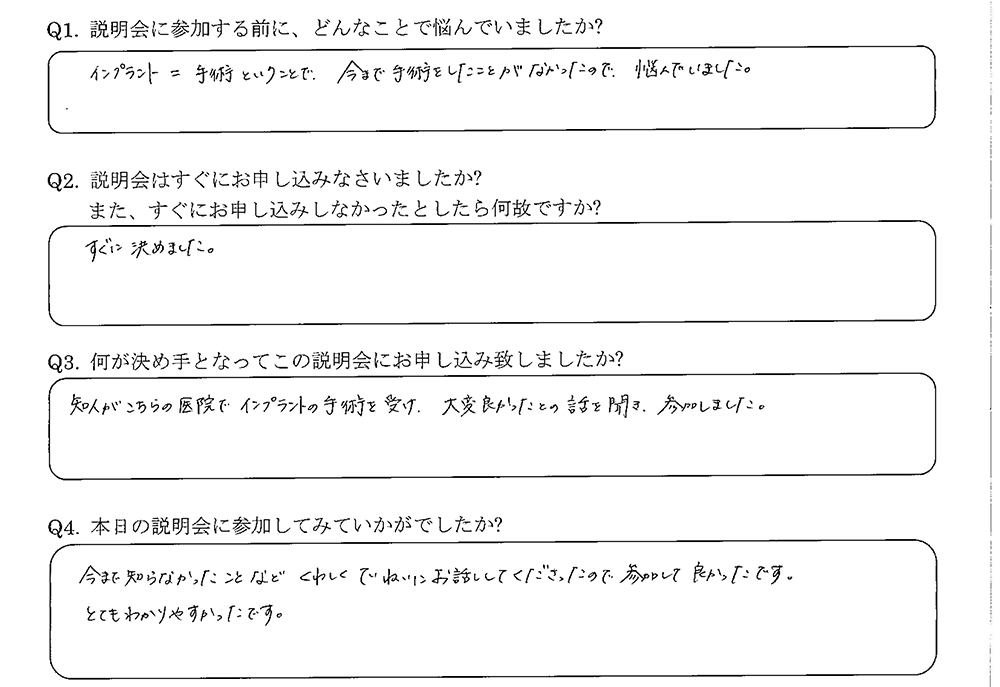 Q1. 説明会に参加する前に、どんなことで悩んでいましたか?
インプラント = 手術 ということで、今まで 手術をしたことが なかったので、悩んでいました。
Q2. 説明会はすぐにお申し込みなさいましたか?
また、すぐにお申し込みしなかったとしたら何故ですか?
すぐに 決めました。
Q3. 何が決め手となってこの説明会にお申し込み致しましたか?
知人がこちらの医院で インプラントの手術を 受け、大変良かったとの 話を聞き、参加しました。
Q4. 本日の説明会に参加してみていかがでしたか?
今まで知らなかった ことなど くわしく ていねいに お話ししてくださったので 参加して 良かったです。
とてもわかりやすかったです。